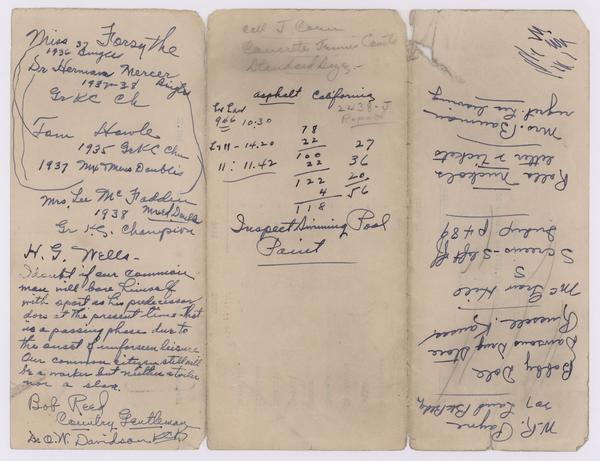 Miss Forsythe
1936 37 Singles
Dr Herman Mercer
1937-38 Singles
Gr KC Ch
Tom Howle
1935 Gr KC Cha
1937 Mx Mens Doubles
Mrs. Lee McFaddin
1938 Mixed Doubles
Gr K.C. Champion
H. G. Wells-
I doubt if our common
man will bore himself
with sport as his predecessor
does at the present time that
is a passing phase due to
the onset of unforseen leisure
Our common citizen still will
be a worker but neither a toiler
nor a slave.
Bob Reed
Country Gentleman
Dr. O. W. Davidson KCK
call J
Concrete Tennis Courts
Standard Size-
asphalt California
2438-J
Lv Law
9:06 10:30
Lv 11 - 14.20
11: 11.42
78
22
100
22
122
4
118
27
36
20
56
Inspect Swimming Pool
Paint
Mrs. Bowman
regret Lee leaving
Rolla Nichols
letter & tickets
Screwis - Sept
S
McLean Hill
Russell, Kansas
Dawsons Drug Store
Bobby Dole
W. R. Payne
207 Land Bk Bldg